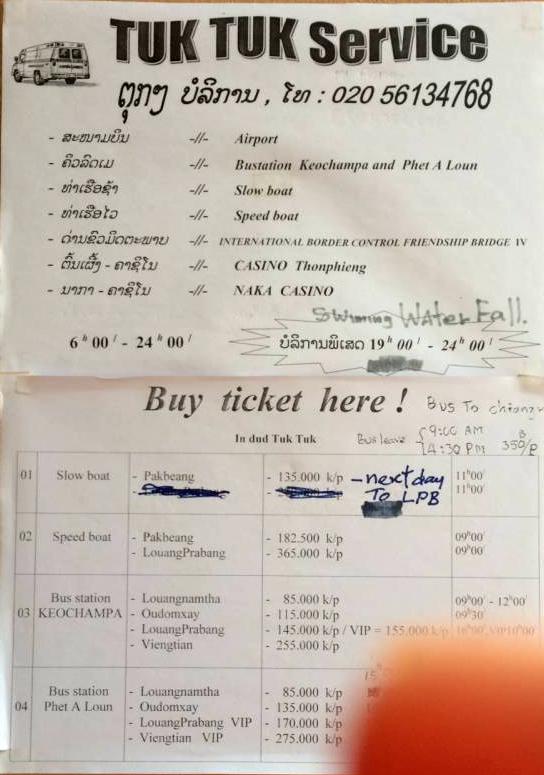 TUK TUK Service
ຕຸກໆ ບໍລິການ , ໂທ : 020 56134768
- ສະໜາມບິນ -//- Airport
- ຄິວລົດເມ -//- Bustation Keochampa and Phet A Loun
- ທ່າເຮືອຊ້າ -//- Slow boat
- ທ່າເຮືອໄວ -//- Speed boat
- ດ່ານຂົວມິດຕະພາບ -//- INTERNATIONAL BORDER CONTROL FRIENDSHIP BRIDGE IV
- ຕົ້ນເຜິ້ງ - ຄາຊິໂນ -//- CASINO Thonphieng
- ນາກາ - ຄາຊິໂນ -//- NAKA CASINO
Swimming Water Fall.
6 h 00 / - 24 h 00 / ບໍລິການພິເສດ 19 h 00 / - 24 h 00 /
Buy ticket here !
Bus To
In dud Tuk Tuk
Bus leave { 9:00 AM
14:30 PM
350/p
01 Slow boat - Pakbeang - 135.000 k/p - next day To LPB 11h00'
11h00'
02 Speed boat - Pakbeang - 182.500 k/p 09h00'
- LouangPrabang - 365.000 k/p 09h00'
03 Bus station KEOCHAMPA - Louangnamtha - 85.000 k/p 09h00' - 12h00'
- Oudomxay - 115.000 k/p 09h30'
- LouangPrabang - 145.000 k/p / VIP = 155.000 k/p 16h00', VIP10h00'
- Viengtian - 255.000 k/p
04 Bus station Phet A Loun - Louangnamtha - 85.000 k/p
- Oudomxay - 135.000 k/p
- LouangPrabang VIP - 170.000 k/p
- Viengtian VIP - 275.000 k/p